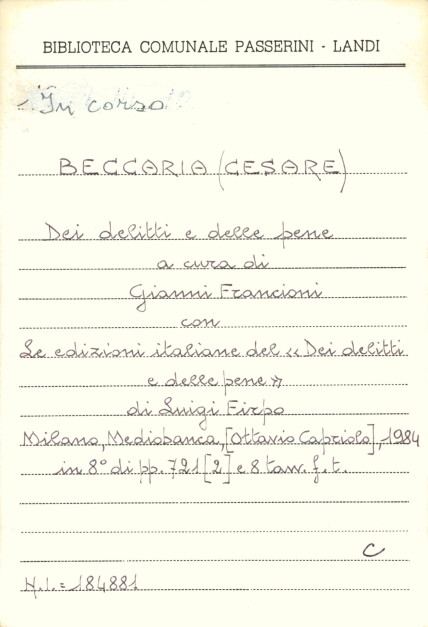 BIBLIOTECA COMUNALE PASSERINI - LANDI
In corso
BECCARIA (CESARE)
Dei delitti e delle pene
a cura di
Gianni Francioni
con
Le edizioni italiane del «Dei delitti
e delle pene»
di Luigi Firpo
Milano, Mediobanca, [Ottavio Capriolo], 1984
in 8° di pp. 721 [2] e 8 tavv. f. t.
C
N.i.= 184881